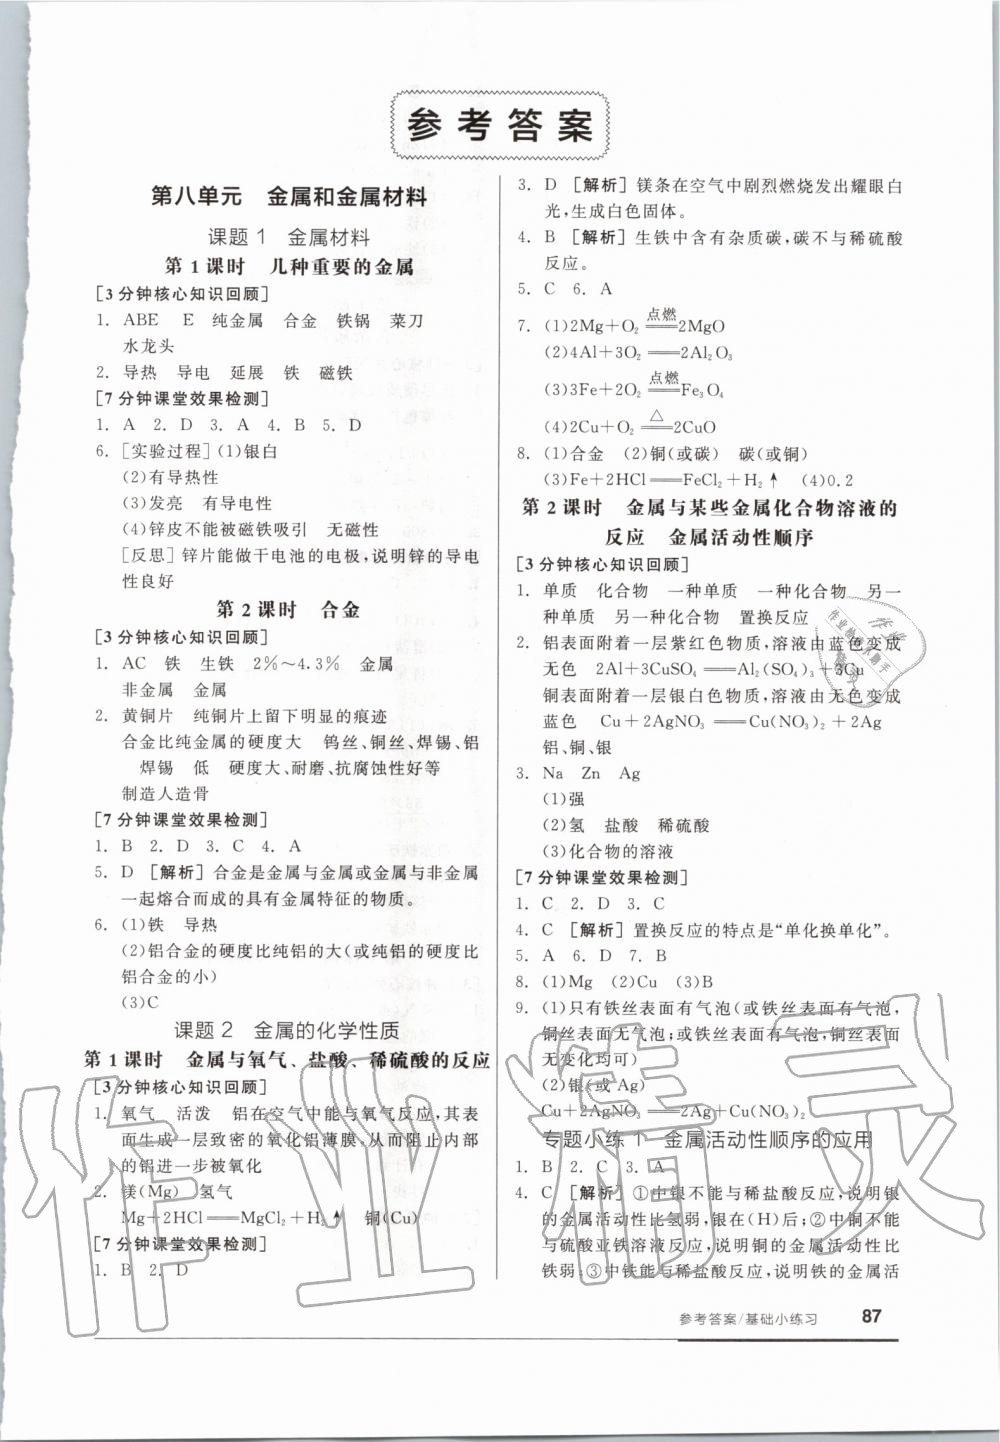 参考答案
第八单元 金属和金属材料
课题1 金属材料
第1课时 几种重要的金属
[3分钟核心知识回顾]
1. ABE E 纯金属 合金 铁锅 菜刀
水龙头
2. 导热 导电 延展 铁 磁铁
[7分钟课堂效果检测]
1. A 2. D 3. A 4. B 5. D
6. [实验过程](1)银白
(2)有导热性
(3)发亮 有导电性
(4)锌皮不能被磁铁吸引 无磁性
[反思]锌片能做干电池的电极,说明锌的导电
性良好
第2课时 合金
[3分钟核心知识回顾]
1. AC 铁 生铁 2%～4.3% 金属
非金属 金属
2. 黄铜片 纯铜片上留下明显的痕迹
合金比纯金属的硬度大 钨丝、铜丝、焊锡、铝
焊锡 低 硬度大、耐磨、抗腐蚀性好等
制造人造骨
[7分钟课堂效果检测]
1. B 2. D 3. C 4. A
5. D [解析]合金是金属与金属或金属与非金属
一起熔合而成的具有金属特征的物质。
6. (1)铁 导热
(2)铝合金的硬度比纯铝的大(或纯铝的硬度比
铝合金的小)
(3)C
课题2 金属的化学性质
第1课时 金属与氧气、盐酸、稀硫酸的反应
[3分钟核心知识回顾]
1. 氧气 活泼 铝在空气中能与氧气反应,其表
面生成一层致密的氧化铝薄膜,从而阻止内部
的铝进一步被氧化
2. 镁(Mg) 氢气
Mg+2HCl══MgCl₂+H₂↑ 铜(Cu)
[7分钟课堂效果检测]
1. B 2. D
3. D [解析]镁条在空气中剧烈燃烧发出耀眼白
光,生成白色固体。
4. B [解析]生铁中含有杂质碳,碳不与稀硫酸
反应。
5. C 6. A
7. (1)2Mg+O₂ 点燃══2MgO
(2)4Al+3O₂══2Al₂O₃
(3)3Fe+2O₂ 点燃══Fe₃O₄
(4)2Cu+O₂ △══2CuO
8. (1)合金 (2)铜(或碳) 碳(或铜)
(3)Fe+2HCl══FeCl₂+H₂↑ (4)0.2
第2课时 金属与某些金属化合物溶液的
反应 金属活动性顺序
[3分钟核心知识回顾]
1. 单质 化合物 一种单质 一种化合物 另一
种单质 另一种化合物 置换反应
2. 铝表面附着一层紫红色物质,溶液由蓝色变成
无色 2Al+3CuSO₄══Al₂(SO₄)₃+3Cu
铜表面附着一层银白色物质,溶液由无色变成
蓝色 Cu+2AgNO₃══Cu(NO₃)₂+2Ag
铝、铜、银
3. Na Zn Ag
(1)强
(2)氢 盐酸 稀硫酸
(3)化合物的溶液
[7分钟课堂效果检测]
1. C 2. D 3. C
4. C [解析]置换反应的特点是“单化换单化”。
5. A 6. D 7. B
8. (1)Mg (2)Cu (3)B
9. (1)只有铁丝表面有气泡(或铁丝表面有气泡,
铜丝表面无气泡;或铁丝表面有气泡,铜丝表面
无变化均可)
(2)银(或Ag)
Cu+2AgNO₃══Cu(NO₃)₂+2Ag
专题小练1 金属活动性顺序的应用
1. B 2. C 3. A
4. C [解析]①中银不能与稀盐酸反应,说明银
的金属活动性比氢弱,银在(H)后;②中铜不能
与硫酸亚铁溶液反应,说明铜的金属活动性比
铁弱;③中铁能与稀盐酸反应,说明铁的金属活
参考答案/基础小练习 87
作业精灵